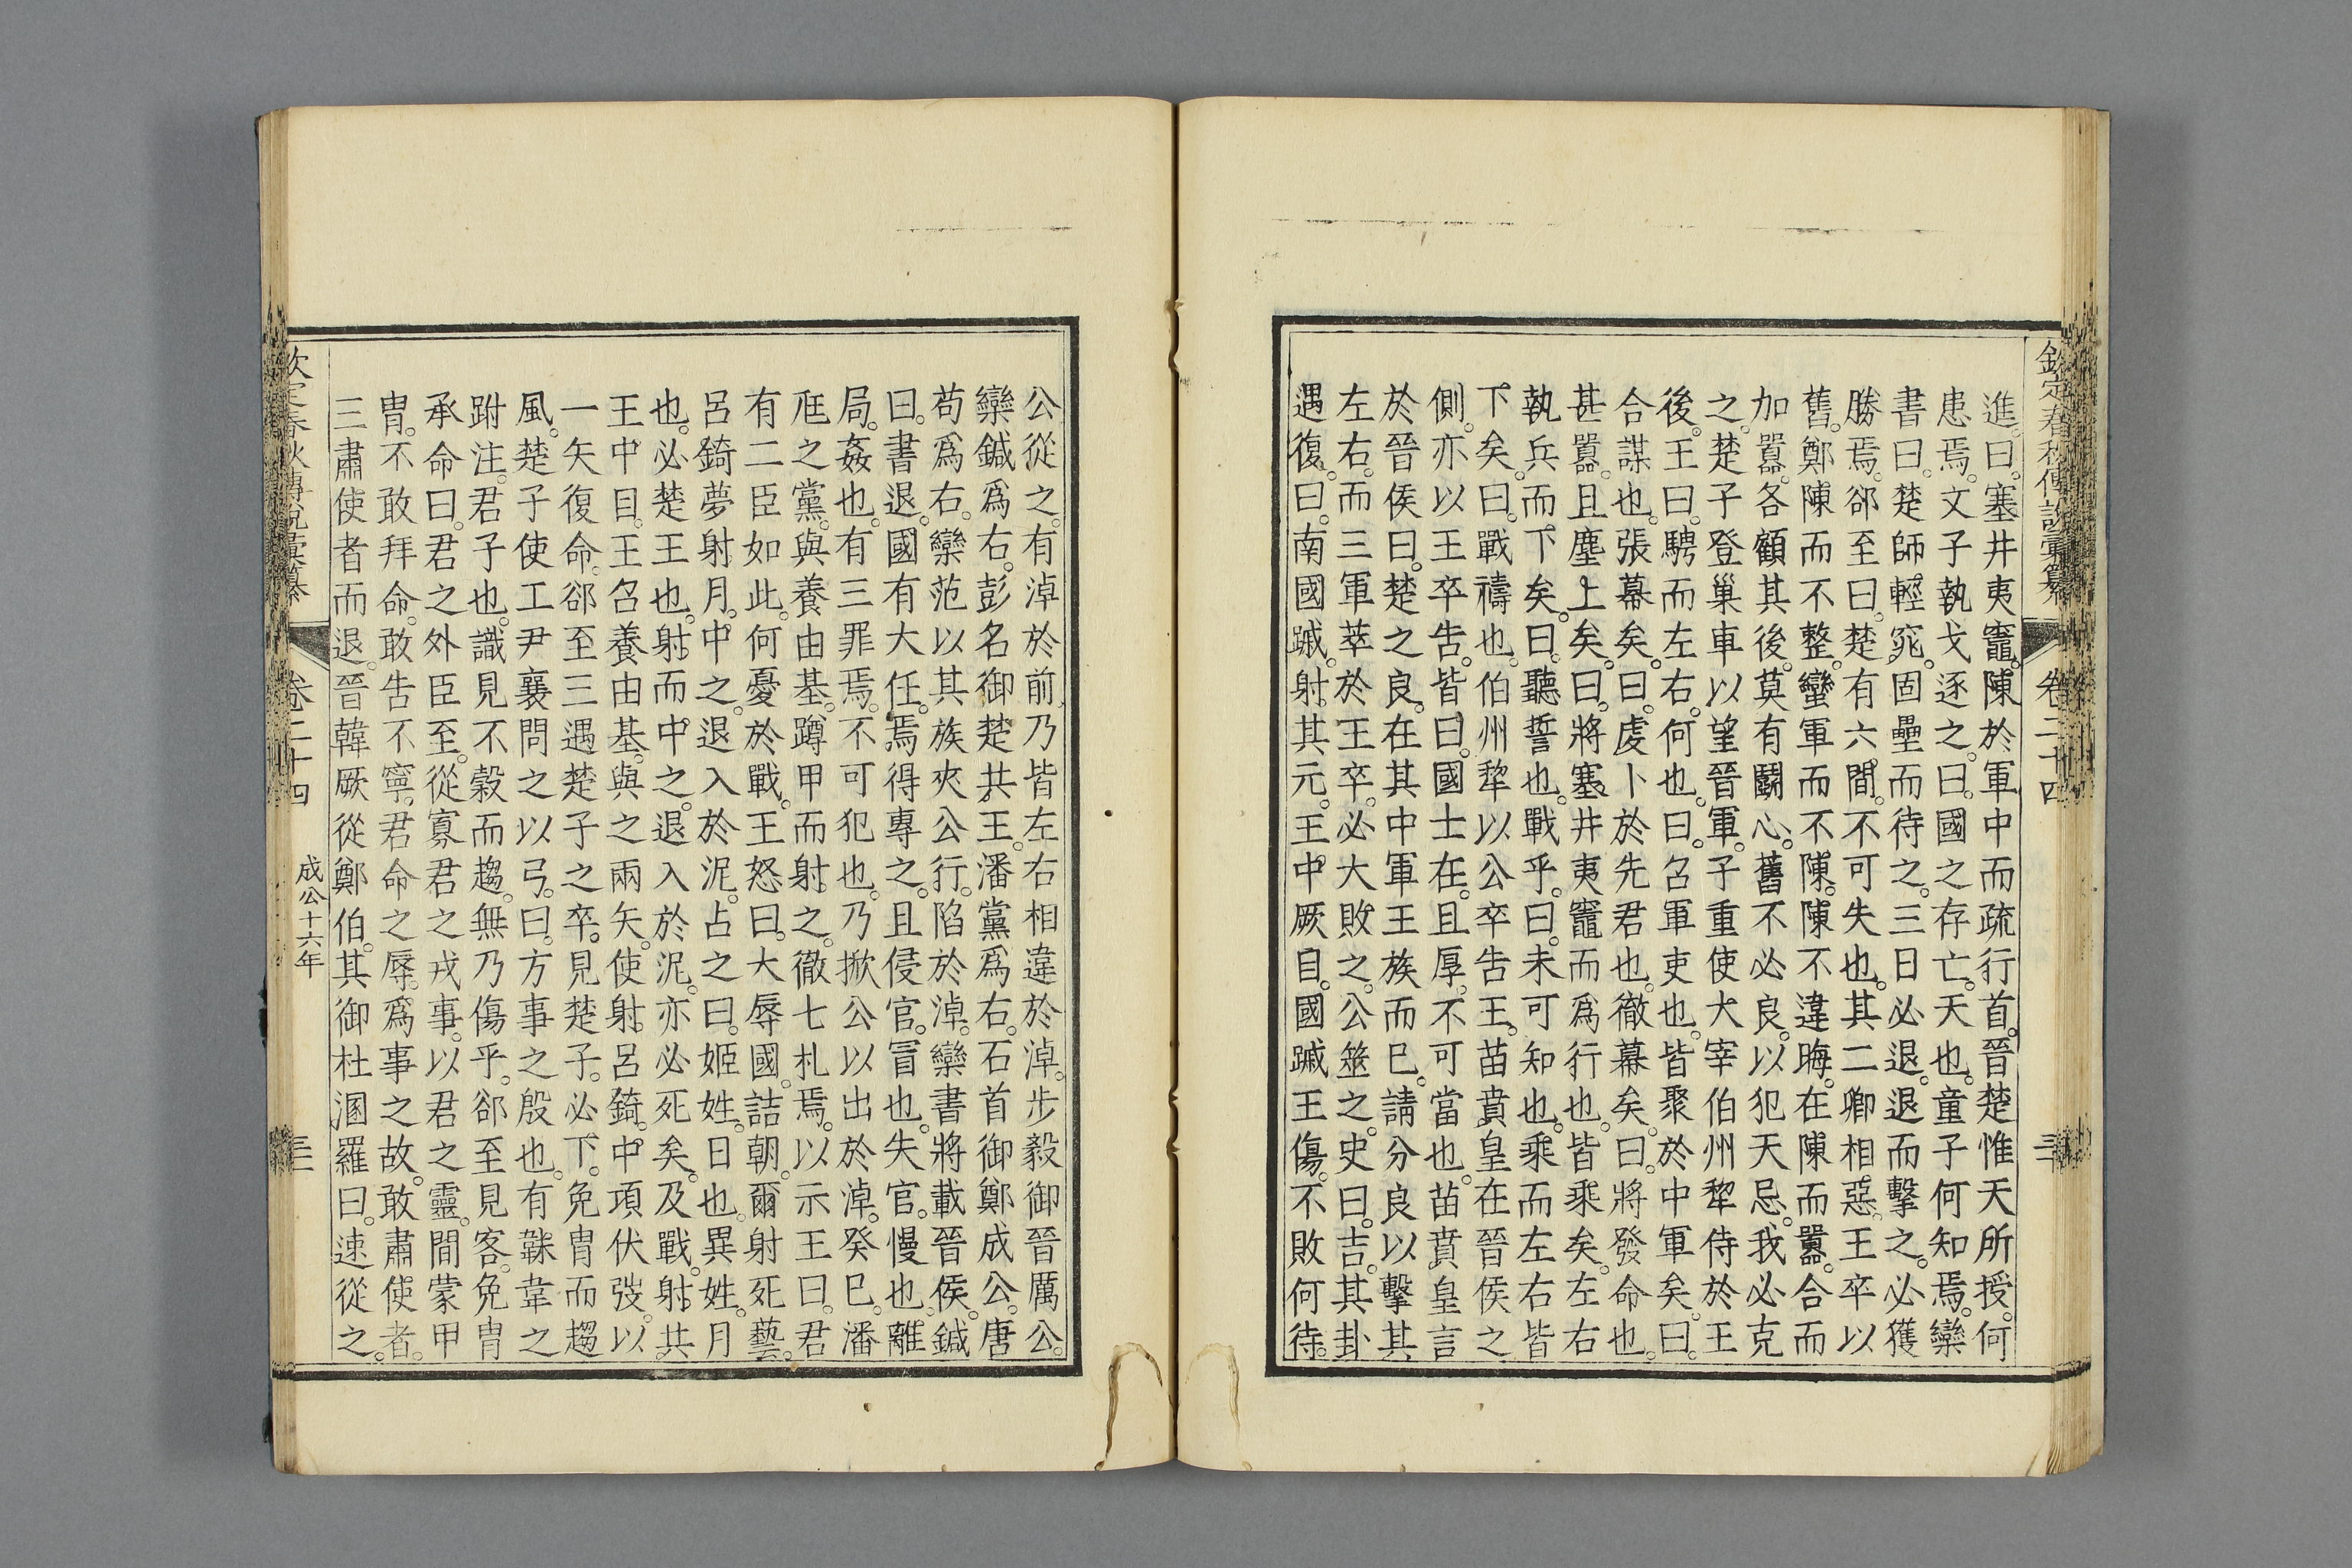 欽定春秋傳說彙纂 卷二十四
進曰塞井夷竈陳於軍中而疏行首晉楚惟天所授何
患焉文子執戈逐之曰國之存亡天也童子何知焉欒
書曰楚師輕窕固壘而待之三日必退退而擊之必獲
勝焉郤至曰楚有六間不可失也其二卿相惡王卒以
舊鄭陳而不整蠻軍而不陳陳不違晦在陳而嚻合而
加嚻各顧其後莫有鬬心舊不必良以犯天忌我必克
之楚子登巢車以望晉軍子重使大宰伯州犂侍於王
後王曰騁而左右何也曰召軍吏也皆聚於中軍矣曰
合謀也張幕矣曰虔卜於先君也徹幕矣曰將發命也
甚嚻且塵上矣曰將塞井夷竈而爲行也皆乘矣左右
執兵而下矣曰聽誓也戰乎曰未可知也乘而左右皆
下矣曰戰禱也伯州犂以公卒告王苗賁皇在晉侯之
側亦以王卒告皆曰國士在且厚不可當也苗賁皇言
於晉侯曰楚之良在其中軍王族而已請分良以擊其
左右而三軍萃於王卒必大敗之公筮之史曰吉其卦
遇復曰南國䠞射其元王中厥目國䠞王傷不敗何待
公從之有淖於前乃皆左右相違於淖步毅御晉厲公
欒鍼爲右彭名御楚共王潘黨爲右石首御鄭成公唐
苟爲右欒范以其族夾公行陷於淖欒書將載晉侯鍼
曰書退國有大任焉得專之且侵官冒也失官慢也離
局姦也有三罪焉不可犯也乃掀公以出於淖癸巳潘
尪之黨與養由基蹲甲而射之徹七札焉以示王曰君
有二臣如此何憂於戰王怒曰大辱國詰朝爾射死藝
呂錡夢射月中之退入於泥占之曰姬姓日也異姓月
也必楚王也射而中之退入於泥亦必死矣及戰射共
王中目王召養由基與之兩矢使射呂錡中項伏弢以
一矢復命郤至三遇楚子之卒見楚子必下免冑而趨
風楚子使工尹襄問之以弓曰方事之殷也有韎韋之
跗注君子也識見不穀而趨無乃傷乎郤至見客免冑
承命曰君之外臣至從寡君之戎事以君之靈間蒙甲
冑不敢拜命敢告不寧君命之辱爲事之故敢肅使者
三肅使者而退晉韓厥從鄭伯其御杜溷羅曰速從之
欽定春秋傳說彙纂 卷二十四 成公十六年